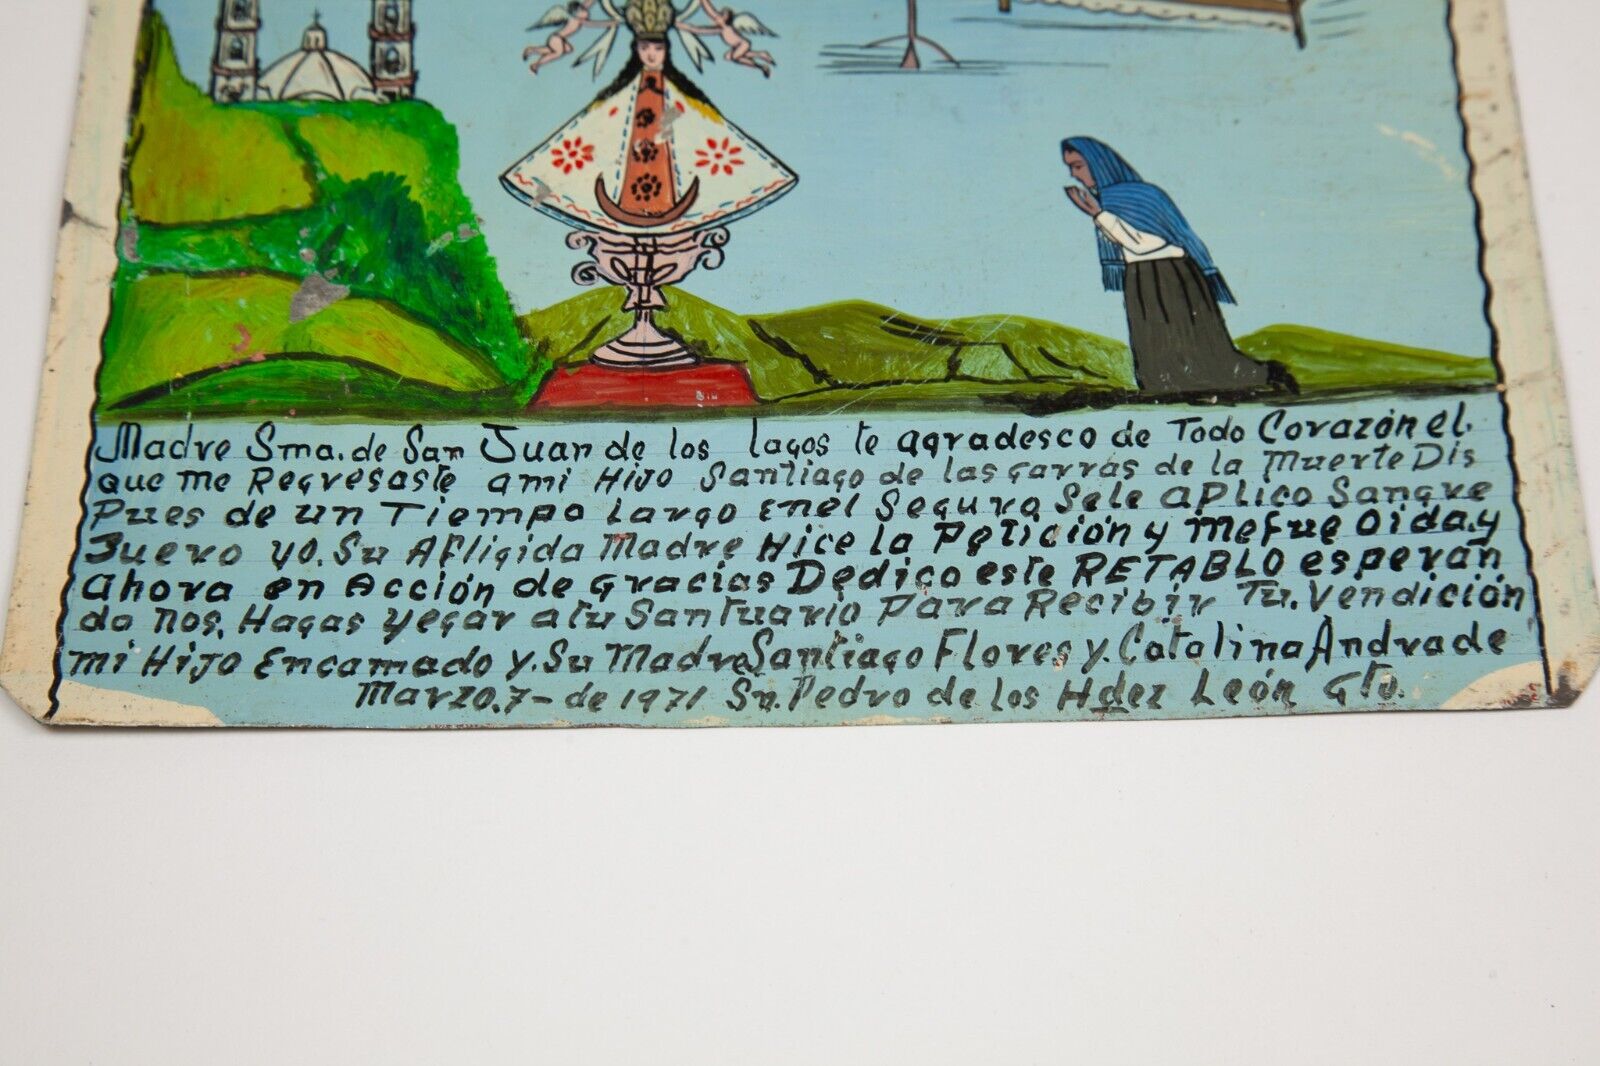 Madre Sma. de San Juan de los lagos te agradesco de Todo Corazón el.
que me Regresaste ami Hijo Santiago de las garras de la Muerte Dis
Pues de un Tiempo Largo Enel Seguro Sele aplico Sangre
Suero yo. Su Afligida Madre Hice la Petición y mefue Oida.y
Ahora en Acción de Gracias Dedico este RETABLO esperan
do nos. Hagas yegar atu Santuario Para Recibir Tu. Vendición
mi Hijo Encamado y. Su Madre Santiago Flores y. Catalina Andrade
Marzo.7- de 1971 Sn. Pedro de los Hdez León Gto.